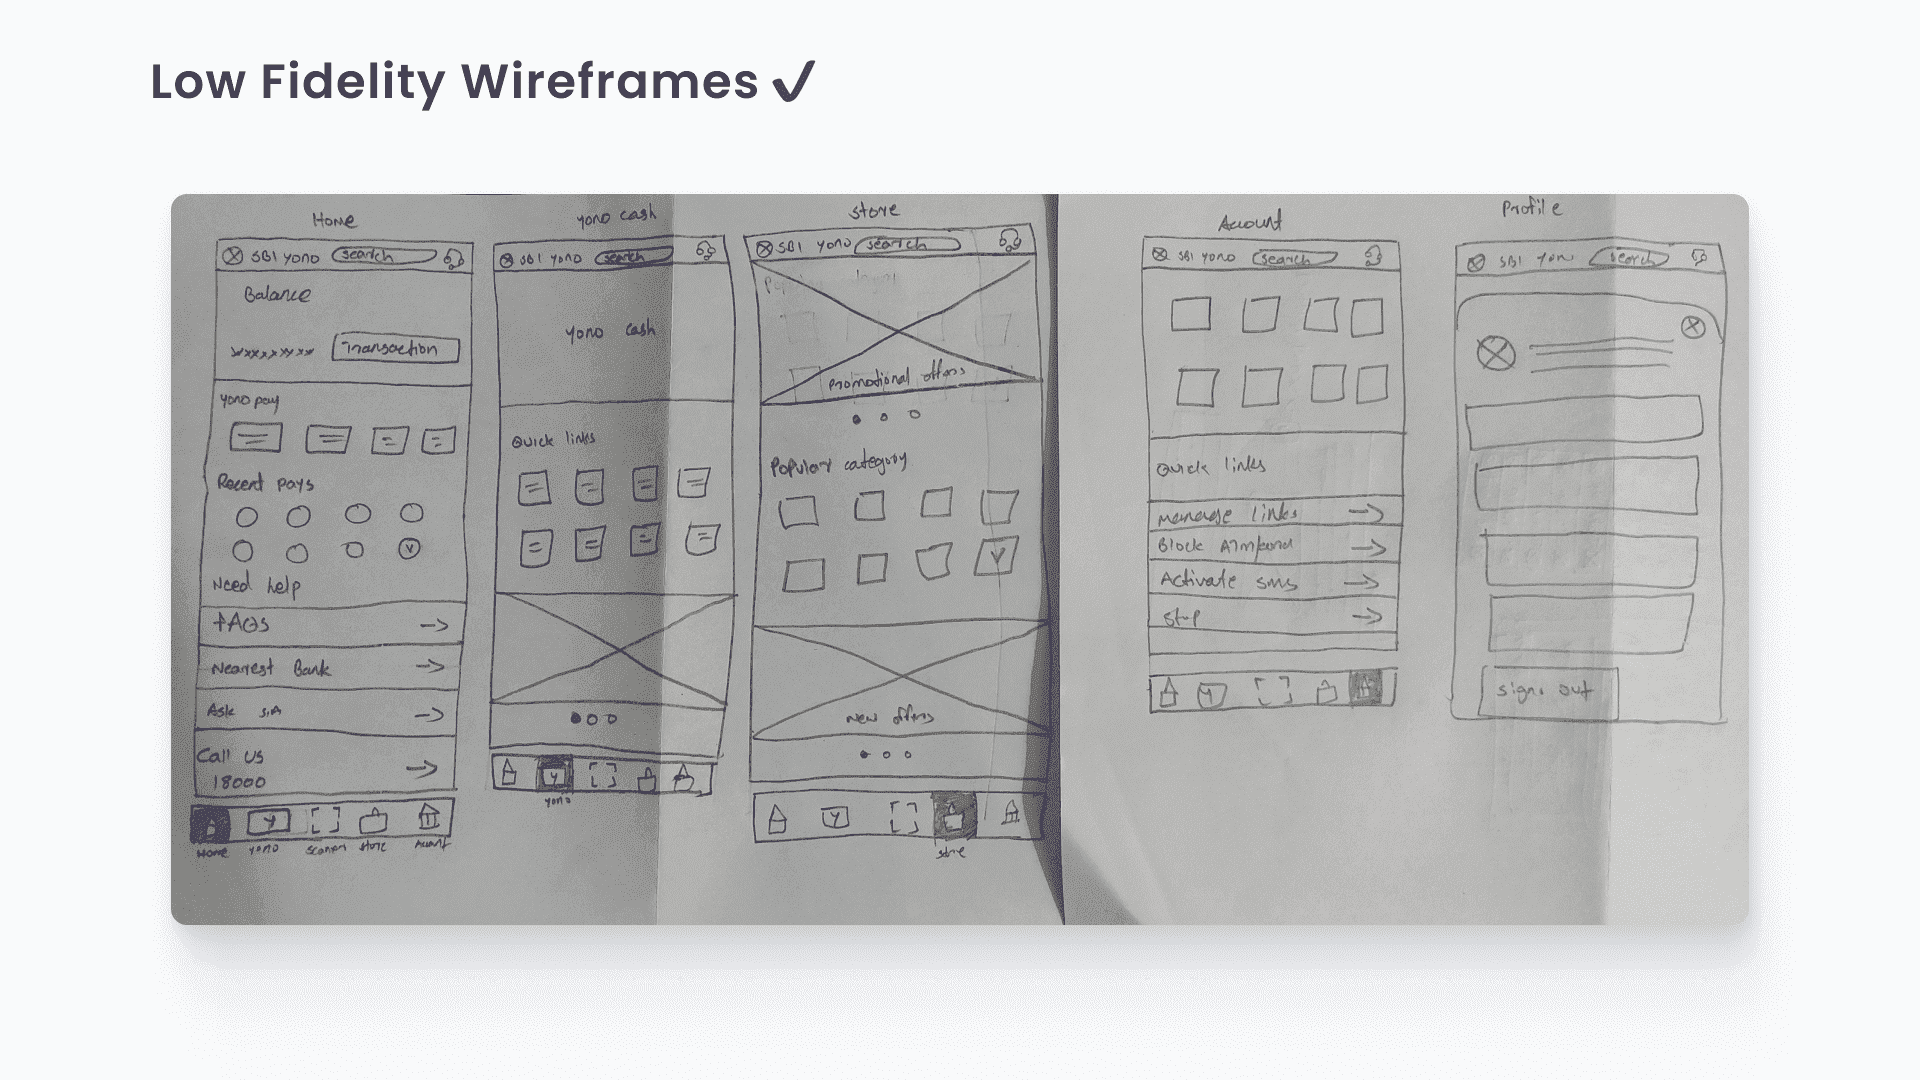 Low Fidelity Wireframes ✓
Home
SBI YONO search
Balance
xxxxxxxxx Transaction
YONO pay
Recent pays
Need help
FAQs
Nearest Bank
Ask SIA
Call US
18000
Home YONO Store
yono cash
SBI YONO search
YONO cash
Quick links
Y
yono
Store
SBI YONO search
Promotional offers
Popular category
New offers
Y
store
Account
SBI YONO search
Quick links
Manage links
Block ATM/card
Activate SMS
Stop
Y
Profile
SBI search
sign out